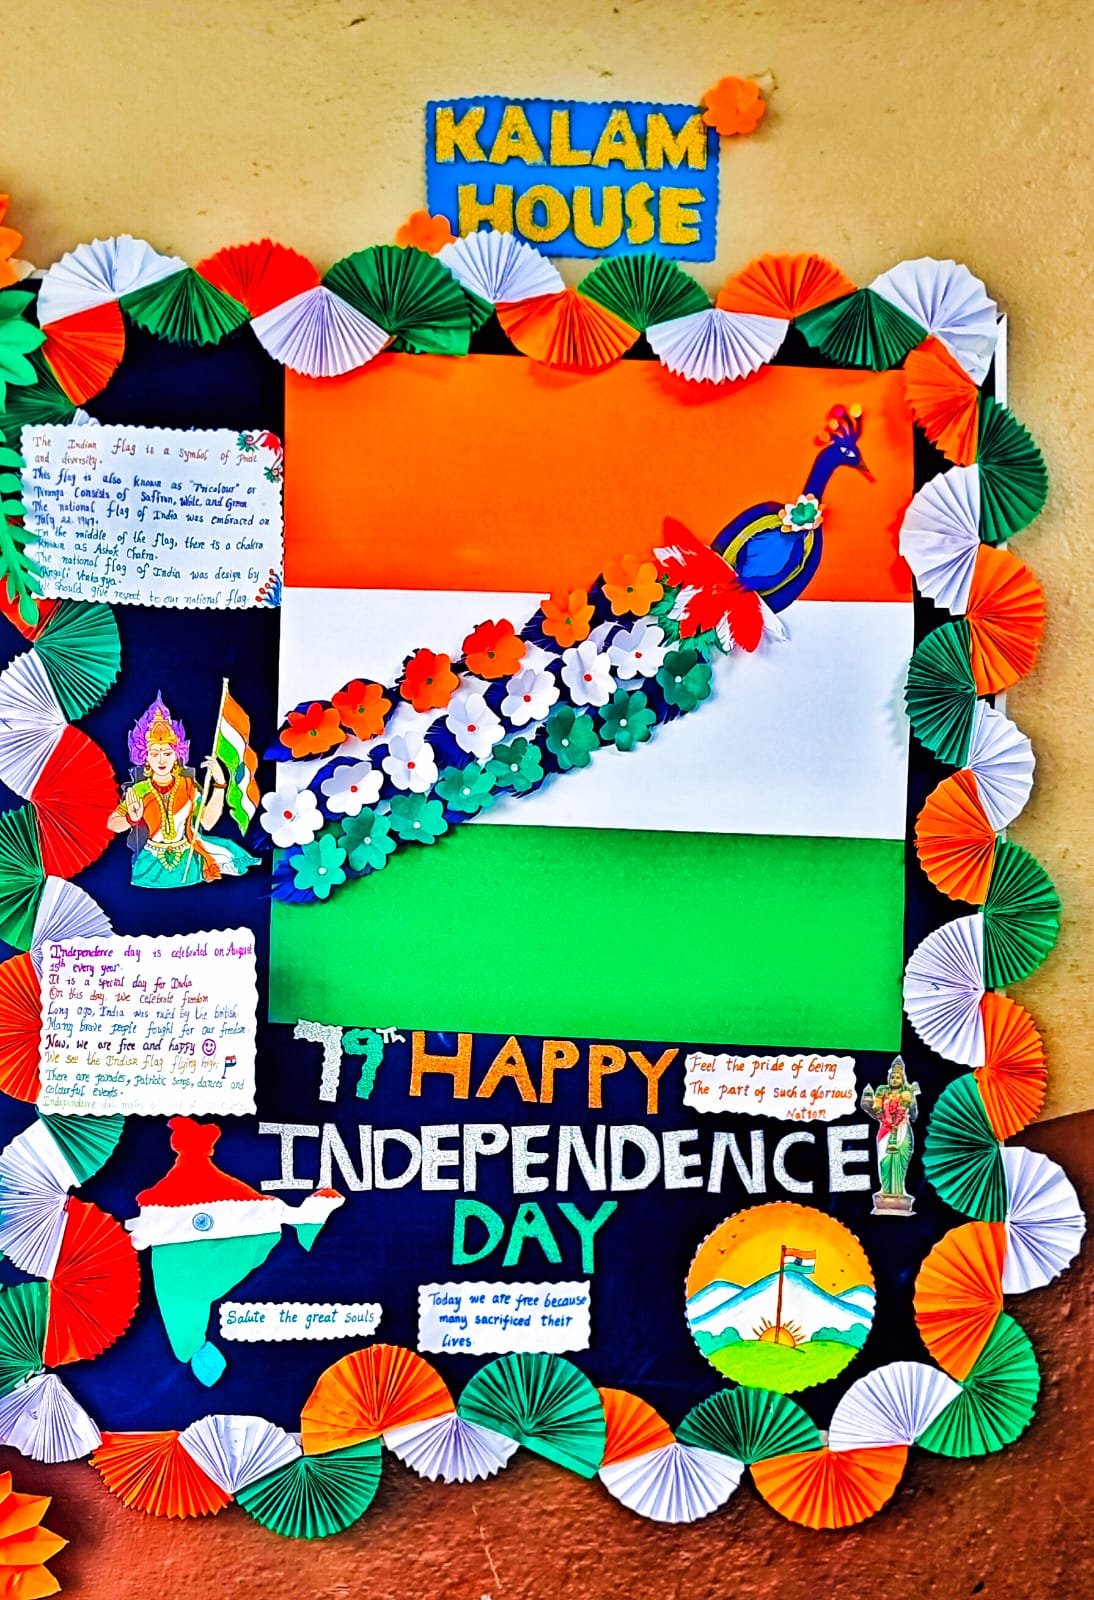 KALAM
HOUSE
The Indian flag is a symbol of Pride
and diversity.
This flag is also known as "Tricolour" or
Tiranga Consists of Saffron, White, and Green
The national flag of India was embraced on
July 22 1947.
In the middle of the flag, there is a chakra
known as Ashok Chakra.
The national flag of India was design by
We should give respect to our national flag.
Independence day is celebrated on August
15th every year.
It is a special day for India
On this day, we celebrate freedom
Long ago, India was ruled by the british
Many brave people fought for our freedom.
Now, we are free and happy
We see the Indian flag flying high.
There are parades, patriotic songs, dances and
colourful events.
Independence day
79th HAPPY
INDEPENDENCE
DAY
Feel the pride of being
The part of such a glorious
Nation
Salute the great souls
Today we are free because
many sacrificed their
lives